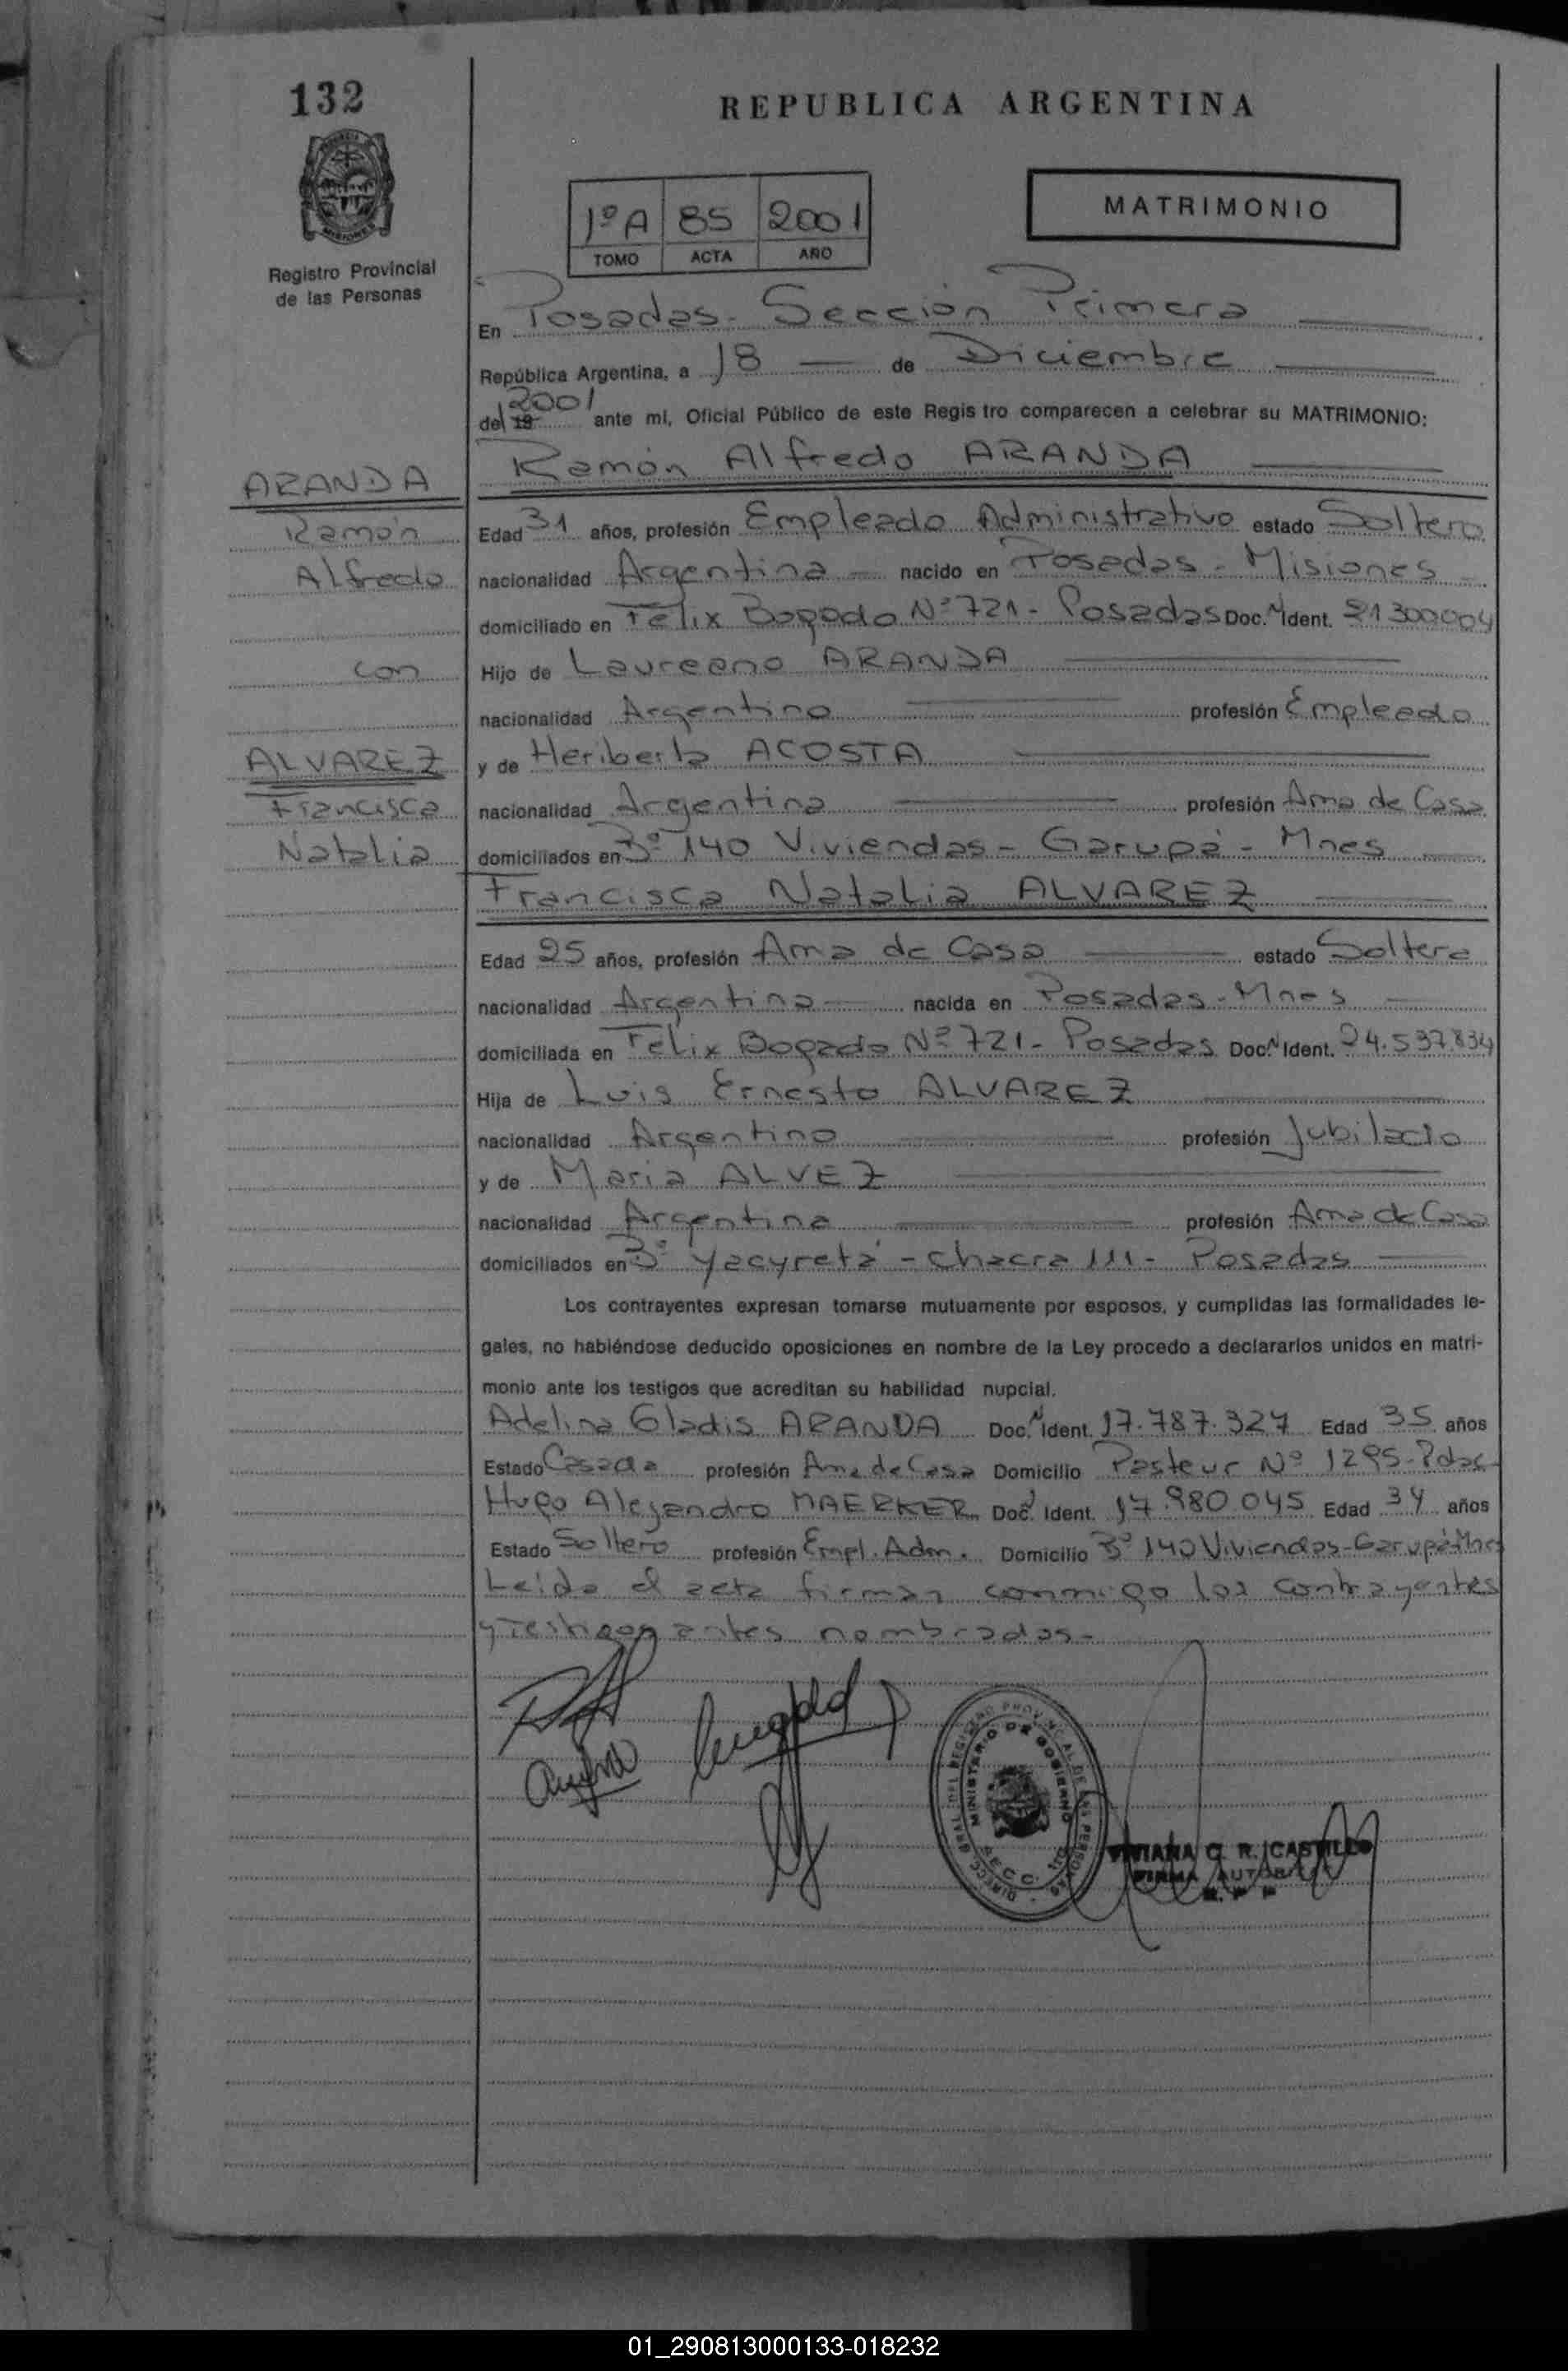 132
REPUBLICA ARGENTINA
MATRIMONIO
1º A 85 2001
TOMO ACTA AÑO
Registro Provincial
de las Personas
En Posadas - Sección Primera
República Argentina, a 18 de Diciembre
del 19 2001 ante mi, Oficial Público de este Regis tro comparecen a celebrar su MATRIMONIO:
Ramón Alfredo ARANDA
ARANDA
Ramón
Alfredo
con
ALVAREZ
Francisca
Natalia
Edad 31 años, profesión Empleado Administrativo estado Soltero
nacionalidad Argentina nacido en Posadas - Misiones
domiciliado en Félix Bogado Nº 721 - Posadas Doc. N Ident. 21300004
Hijo de Laureano ARANDA
nacionalidad Argentino profesión Empleado
y de Heriberta ACOSTA
nacionalidad Argentina profesión Ama de Casa
domiciliados en Bº 140 Viviendas - Garupá - Mnes
Francisca Natalia ALVAREZ
Edad 25 años, profesión Ama de Casa estado Soltera
nacionalidad Argentina nacida en Posadas - Mnes
domiciliada en Félix Bogado Nº 721 - Posadas Doc. N Ident. 24.537.834
Hija de Luis Ernesto ALVAREZ
nacionalidad Argentino profesión Jubilado
y de María ALVEZ
nacionalidad Argentina profesión Ama de Casa
domiciliados en Bº Yacyretá - Chacra 111 - Posadas
Los contrayentes expresan tomarse mutuamente por esposos, y cumplidas las formalidades le-
gales, no habiéndose deducido oposiciones en nombre de la Ley procedo a declararlos unidos en matri-
monio ante los testigos que acreditan su habilidad nupcial.
Adelina Gladis ARANDA Doc. N Ident. 17.787.327 Edad 35 años
Estado Casada profesión Ama de Casa Domicilio Pasteur Nº 1295 - Pdas
Hugo Alejandro MAERKER Doc. Ident. 17.980.045 Edad 34 años
Estado Soltero profesión Empl. Adm. Domicilio Bº 140 Viviendas - Garupá - Mnes
Leída el acta firman conmigo los contrayentes
y testigos antes nombrados -
DIRECC. GRAL. DEL REGISTRO PROVINCIAL DE LAS PERSONAS
MINISTERIO DE GOBIERNO
SECC.
VIVIANA C. R. CASTILLO
FIRMA AUTORIZADA
R. P. P.
01_290813000133-018232